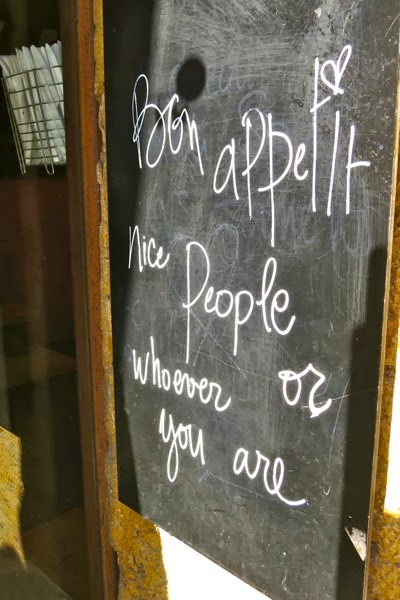 Bon appetit
nice People
whoever or
you are